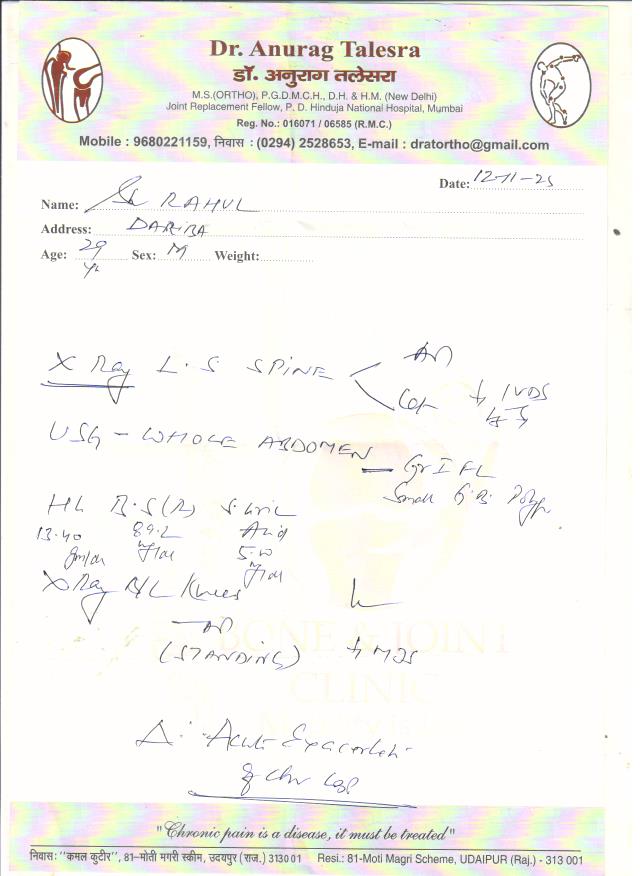 Dr. Anurag Talesra
डॉ. अनुराग तलेसरा
M.S.(ORTHO), P.G.D.M.C.H., D.H. & H.M. (New Delhi)
Joint Replacement Fellow, P. D. Hinduja National Hospital, Mumbai
Reg. No.: 016071 / 06585 (R.M.C.)
Mobile : 9680221159, निवास : (0294) 2528653, E-mail : dratortho@gmail.com
Date: 12-11-25
Name: RAHUL
Address: DARIBA
Age: 29 Sex: M Weight:
X Ray L.S SPINE
AP
↓ IVDS
USG - WHOLE ABDOMEN
Gr I FL
Small G.B. Polyp
Hb B.S(R) S.Uric
13.40 89.2 Acid
gm/dl mg/dl 5.10
mg/dl
X Ray B/L Knees
AP
(STANDING) ↓ MJS
BONE & JOINT
CLINIC
Δ: Acute Exacerbation
of chr LBP
"Chronic pain is a disease, it must be treated"
निवास: "कमल कुटीर", 81-मोती मगरी स्कीम, उदयपुर (राज.) 313001 Resi.: 81-Moti Magri Scheme, UDAIPUR (Raj.) - 313 001